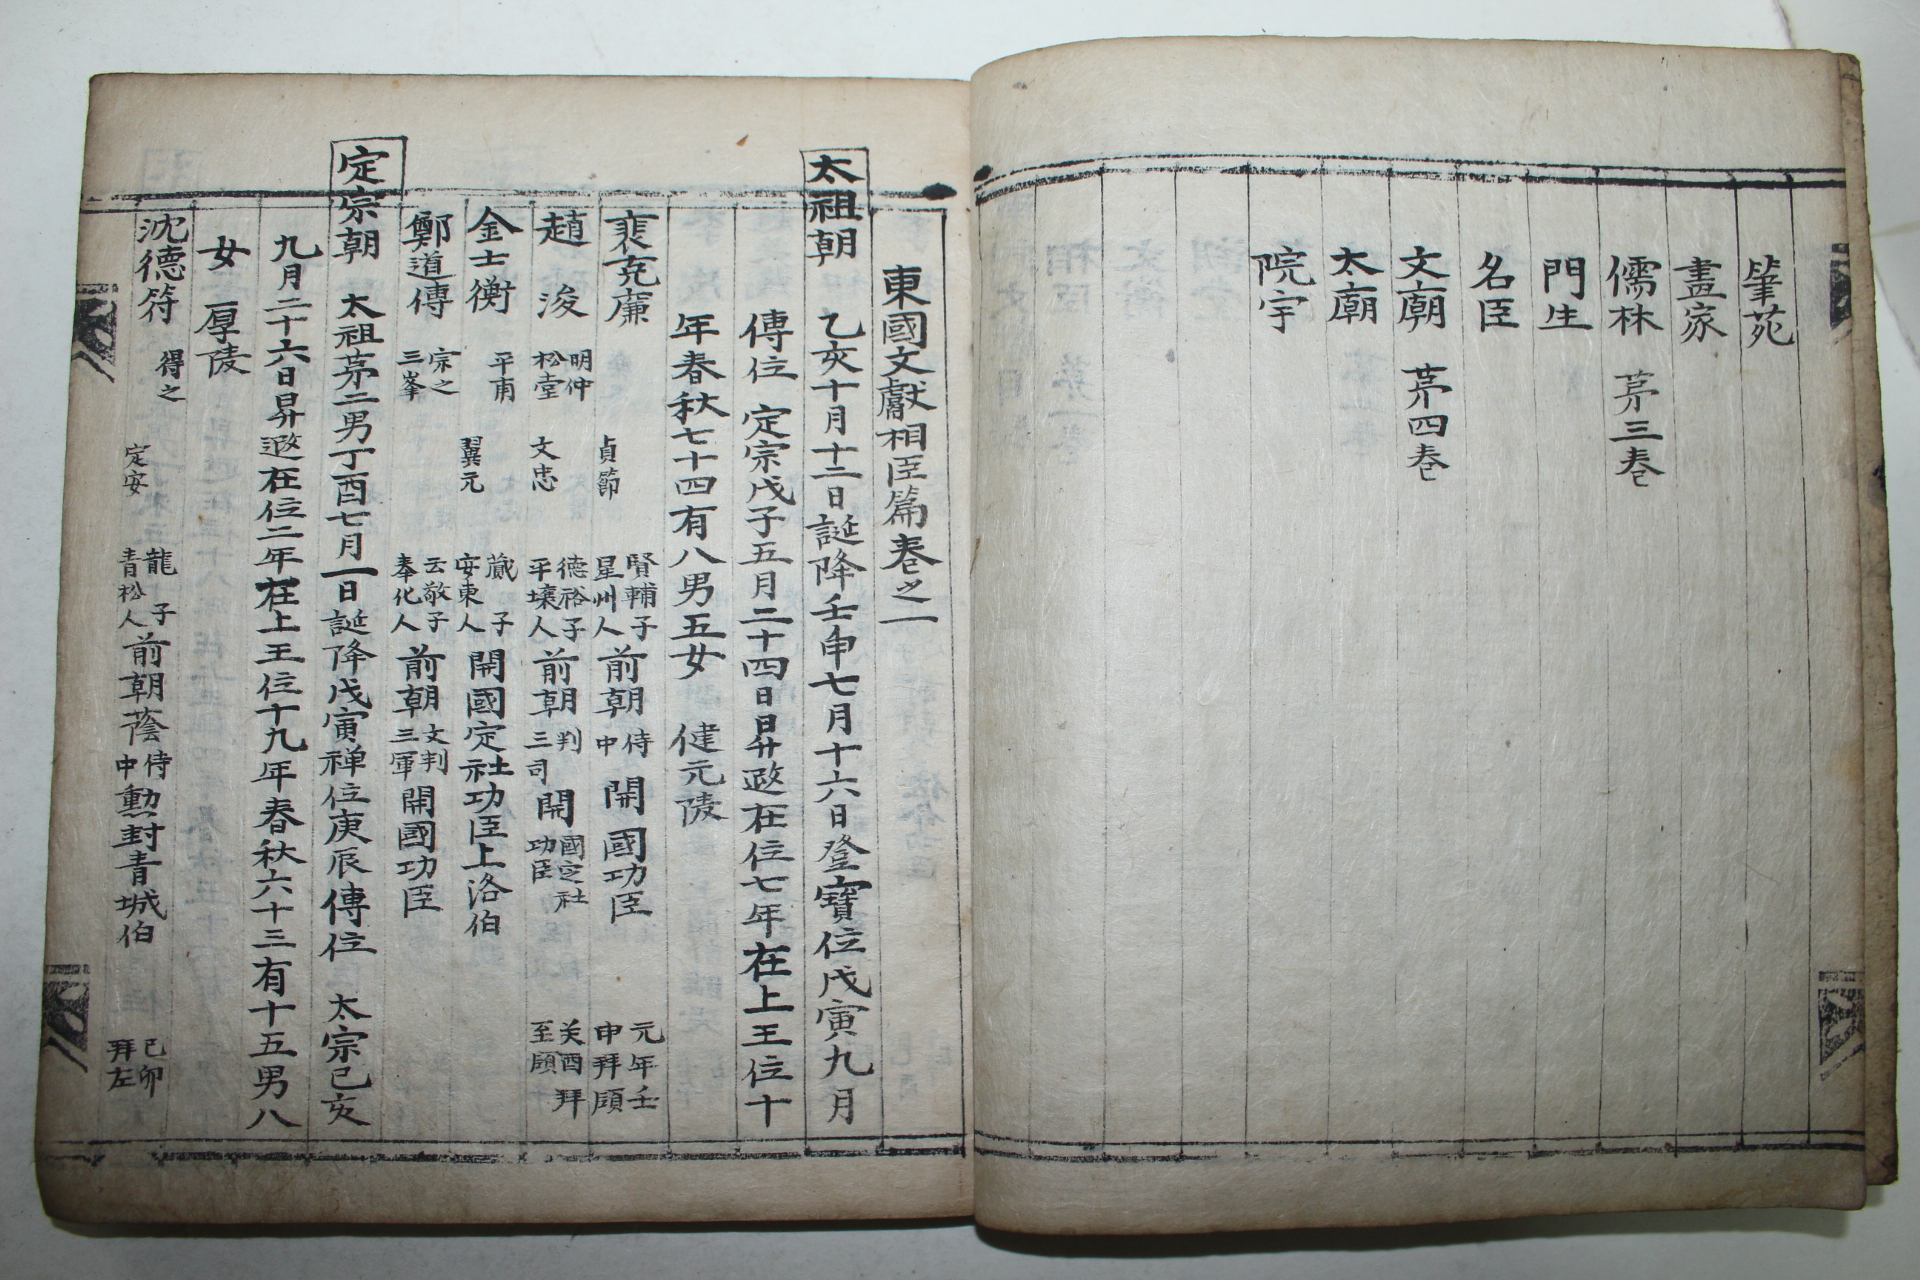 筆苑
畫家
儒林 苐三卷
門生
名臣
文廟 苐四卷
太廟
院宇
東國文獻相臣篇卷之一
太祖朝 乙亥十月十二日誕降壬申七月十六日登寶位戊寅九月
傳位 定宗戊子五月二十四日昇遐在位七年在上王位十
年春秋七十四有八男五女 健元陵
裵克廉 貞節 賢輔子 星州人 前朝侍中 開國功臣 元年壬申拜領
趙浚 明仲 松堂 文忠 德裕子 平壤人 前朝判三司 開國定社功臣 癸酉拜至領
金士衡 平甫 翼元 蕆子 安東人 開國定社功臣上洛伯
鄭道傳 宗之 三峯 云敬子 奉化人 前朝文判三軍 開國功臣
定宗朝 太祖苐二男丁酉七月一日誕降戊寅禅位庚辰傳位 太宗己亥
九月二十六日昇遐在位二年在上王位十九年春秋六十三有十五男八
女 厚陵
沈德符 得之 定安 龍子 青松人 前朝蔭侍中勳封青城伯 己卯拜左